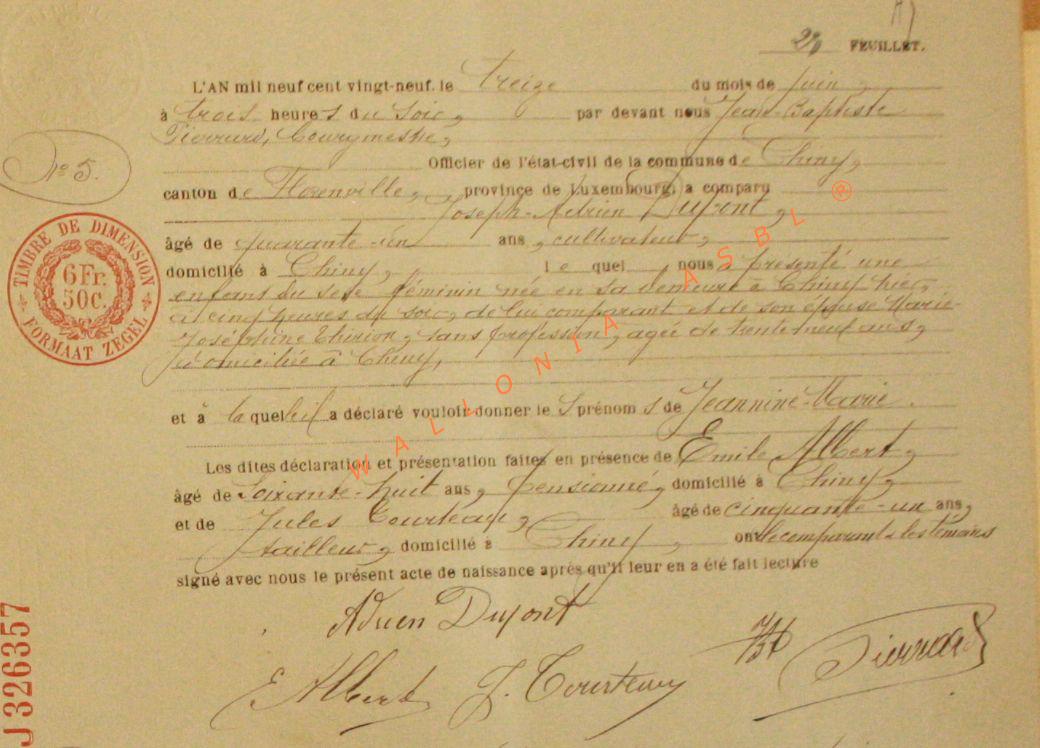 2e FEUILLET.
L'AN mil neuf cent vingt-neuf, le treize du mois de juin
à trois heures du soir, par devant nous Jean-Baptiste
Pierrard, bourgmestre,
Officier de l'état-civil de la commune de Chiny,
N° 5.
canton de Florenville, province de Luxembourg, a comparu
Joseph-Adrien Dupont,
âgé de quarante-un ans, cultivateur,
domicilié à Chiny, le quel nous a présenté une
enfant du sexe féminin née en sa demeure à Chiny hier,
à cinq heures du soir, de lui comparant et de son épouse Marie
Joséphine Thirion, sans profession, agée de trente neuf ans,
domiciliée à Chiny,
et à laquelle il a déclaré vouloir donner les prénoms de Jeannine-Marie.
Les dites déclaration et présentation faites en présence de Emile Albert,
âgé de Soixante-huit ans, pensionné, domicilié à Chiny,
et de Jules Courteaux, âgé de cinquante-un ans,
tailleur, domicilié à Chiny, ont le comparant & les témoins
signé avec nous le présent acte de naissance après qu'il leur en a été fait lecture
Adrien Dupont
Pierrard
E Albert J. Courteaux
TIMBRE DE DIMENSION
6 Fr.
50 C.
FORMAAT ZEGEL
J 326357
WALLONIA ASBL ®